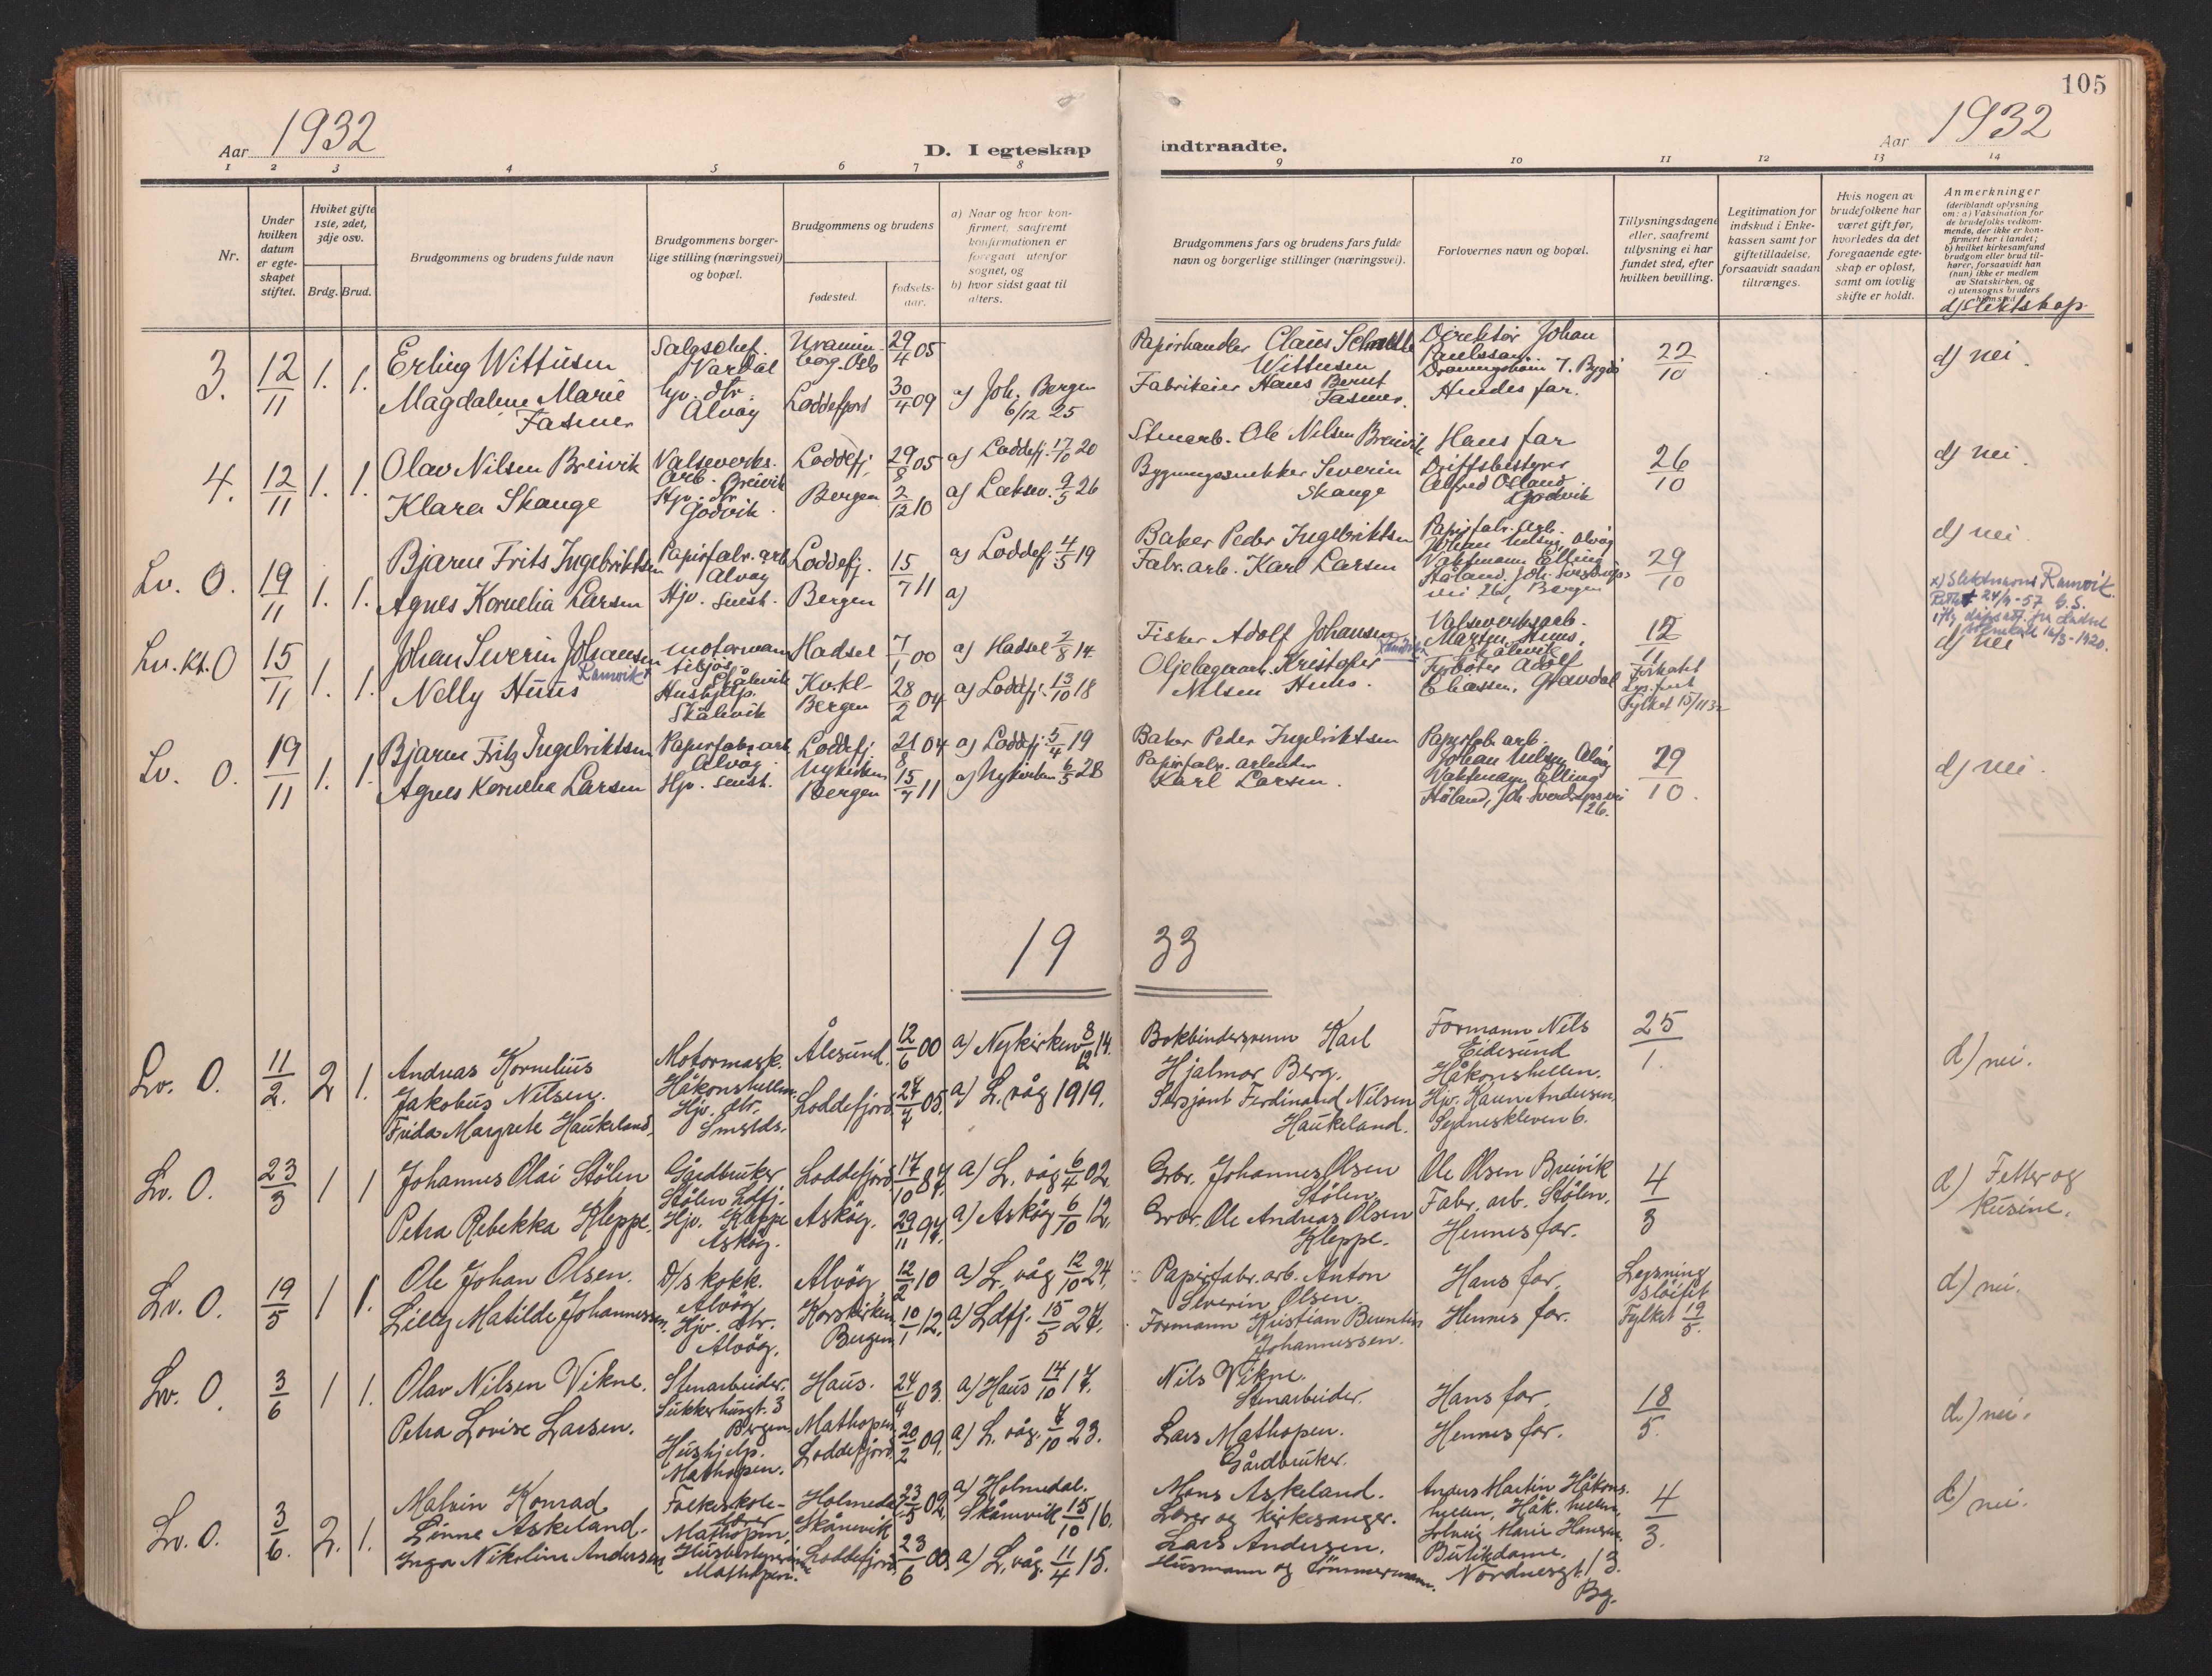 105
Aar 1932
D. I egteskap indtraadte.
Aar 1932
1 2 3 4 5 6 7 8 9 10 11 12 13 14
Nr.
Under hvilken datum er egteskapet stiftet.
Hviket gifte 1ste, 2det, 3dje osv.
Brdg. Brud.
Brudgommens og brudens fulde navn
Brudgommens borgerlige stilling (næringsvei) og bopæl.
Brudgommens og brudens
fødested.
fødselsaar.
a) Naar og hvor konfirmert, saafremt konfirmationen er foregaat utenfor sognet, og
b) hvor sidst gaat til alters.
Brudgommens fars og brudens fars fulde navn og borgerlige stillinger (næringsvei).
Forlovernes navn og bopæl.
Tillysningsdagene eller, saafremt tillysning ei har fundet sted, efter hvilken bevilling.
Legitimation for indskud i Enkekassen samt for giftetilladelse, forsaavidt saadan tiltrænges.
Hvis nogen av brudefolkene har været gift før, hvorledes da det foregaaende egteskap er opløst, samt om lovlig skifte er holdt.
Anmerkninger
(deriblandt oplysning om: a) Vaksination for de brudefolks vedkommende, der ikke er konfirmert her i landet;
b) hvilket kirkesamfund brudgom eller brud tilhører, forsaavidt han (hun) ikke er medlem av Statskirken, og
c) utensogns bruders hjemsted
d) Slektskap.
3. 12/11 1. 1.
Erling Wittusen
Magdalene Marie Fasmer
Salgschef. Vardal
hjv. dtr. Alvøy
Uranienborg. Oslo 29/4 05
Loddefjord 30/4 09
a) Joh. Bergen 6/12 25
Papirhandler Claus Wittusen
Fabrikeier Hans Berent Fasmer.
Direktør Johan Paulssen, 7. Bygdø
Hendes far.
22/10
d) nei.
4. 12/11 1. 1.
Olav Nilsen Breivik
Klara Skauge
Valseverks. arb. Breivik
Hjv. dtr Godvik.
Loddefj. 29/8 05
Bergen 2/12 10
a) Loddefj. 17/10 20
a) Laksev. 9/5 26
Stenarb. Ole Nilsen Breivik
Bygningssnekker Severin Skauge
Hans far
Driftsbestyrer Alfred Osland Godvik
26/10
d) nei.
Lv. O. 19/11 1. 1.
Bjarne Frits Ingebriktsen
Agnes Kornelia Larsen
Papirfabr. arb Alvøy
Hjv. Søst.
Loddefj.
Bergen 15/7 11
a) Loddefj 4/5 19
a)
Baker Peder Ingebriktsen
Fabr. arb. Karl Larsen
Papirfabr. arb. Johan Nilsen, Alvøy
Vaktmann Elling Håland, Joh. Sverdrups vei 26, Bergen
29/10
d) nei.
x) Slektsnavn Ramvik.
Lv. Kt. O 15/11 1. 1.
Johan Severin Johansen Ramvik x
Nelly Huus
motormann tilsjøs Skålevik
Hushjelp. Skålevik
Hadsel 7/1 00
Kv.kl- Bergen 28/2 04
a) Hadsel 2/8 14
a) Loddefj. 13/10 18
Fisker Adolf Johansen
Oljelagerarb. Kristofer Nilsen Huus.
Valseverksarb. Martin Huus, Skålevik
Fyrbøter Adolf Eliassen, Gravdal
12/11
Fylket 15/11 32
d) nei
Lv. O. 19/11 1. 1.
Bjarne Fritz Ingebriktsen
Agnes Kornelia Larsen
Papirfabr. arb Alvøy.
Hjv. Søst.
Loddefj 21/8 04
Nykirken Bergen 15/7 11
a) Loddefj 5/4 19
a) Nykirken 6/5 28
Baker Peder Ingebriktsen
Papirfabr. arbeider Karl Larsen.
Papirfab. arb. Johan Nilsen Alvøy
Vaktmann Elling Håland, Joh. Sverdrups vei 26.
29/10.
d) nei.
19 33
Lv. O. 11/2. 2 1.
Andreas Kornelius Jakobus Nilsen.
Frida Margrete Haukeland.
Motormask. Håkonshellen.
Hjv. dtr. Smstds.
Ålesund. 12/6 00
Loddefjord 27/4 05.
a) Nykirken 8/12 14.
a) L. våg 1919.
Bokbindersvenn Karl Hjalmar Berg.
Sersjant Ferdinand Nilsen Haukeland.
Formann Nils Eidesund Håkonshellen.
Hjv. Karen Andersen, Sydneskleven 6.
25/1.
d) nei.
Lv. O. 23/3 1 1
Johannes Olai Stølen
Petra Rebekka Kleppe.
Gårdbruker Stølen Ldfj.
Hjv. Kleppe Askøy.
Loddefjord 17/10 87.
Askøy. 29/11 94.
a) L. våg 6/4 02.
a) Askøy 6/10 12.
Gbr. Johannes Olsen Stølen.
Gbr. Ole Andreas Olsen Kleppe.
Ole Olsen Breivik Fabr. arb. Stølen.
Hennes far.
4/3
d) Fetter og kusine.
Lv. O. 19/5 1 1.
Ole Johan Olsen.
Lilly Matilde Johannessen.
D/s kokk. Alvøy
Hjv. dtr. Alvøy.
Alvøy, 12/2 10
Korskirken Bergen 10/1 12.
a) L. våg 12/10 24.
a) Ldfj. 15/5 27.
Papirfabr. arb. Anton Severin Olsen.
Formann Kristian Berentin Johannessen.
Hans far,
Hennes far.
Lysning sløifet
Fylket 19/5.
d) nei.
Lv. O. 3/6 1 1.
Olav Nilsen Vikne.
Petra Lovise Larsen.
Stenarbeider. Sukkerhusgt. 3 Bergen.
Hushjelp. Mathopen.
Haus. 24/4 03.
Mathopen Loddefjord 20/2 09.
a) Haus 14/10 17.
a) L. våg. 7/10 23.
Nils Vikne. Stenarbeider.
Lars Mathopen. Gårdbruker.
Hans far,
Hennes far.
18/5.
d) nei.
Lv. O. 3/6. 2. 1.
Malvin Konrad Linne Askeland.
Inga Nikoline Andersen
Folkeskolelærer Mathopen,
Husbestyrerinne Mathopen.
Holmedal Skånevik 23/5 02.
Loddefjord 23/6 00.
a) Holmedal. Skånevik 15/10 16.
a) L. våg. 11/4 15.
Mons Askeland. Lærer og kirkesanger.
Lars Andersen. Husmann og tømmermann.
Anders Martin Håkonshellen, Håk. hellen,
Solveig Marie Hansen, Butikdame. Nordnesgt. 13. Bg.
4/3.
d) nei.